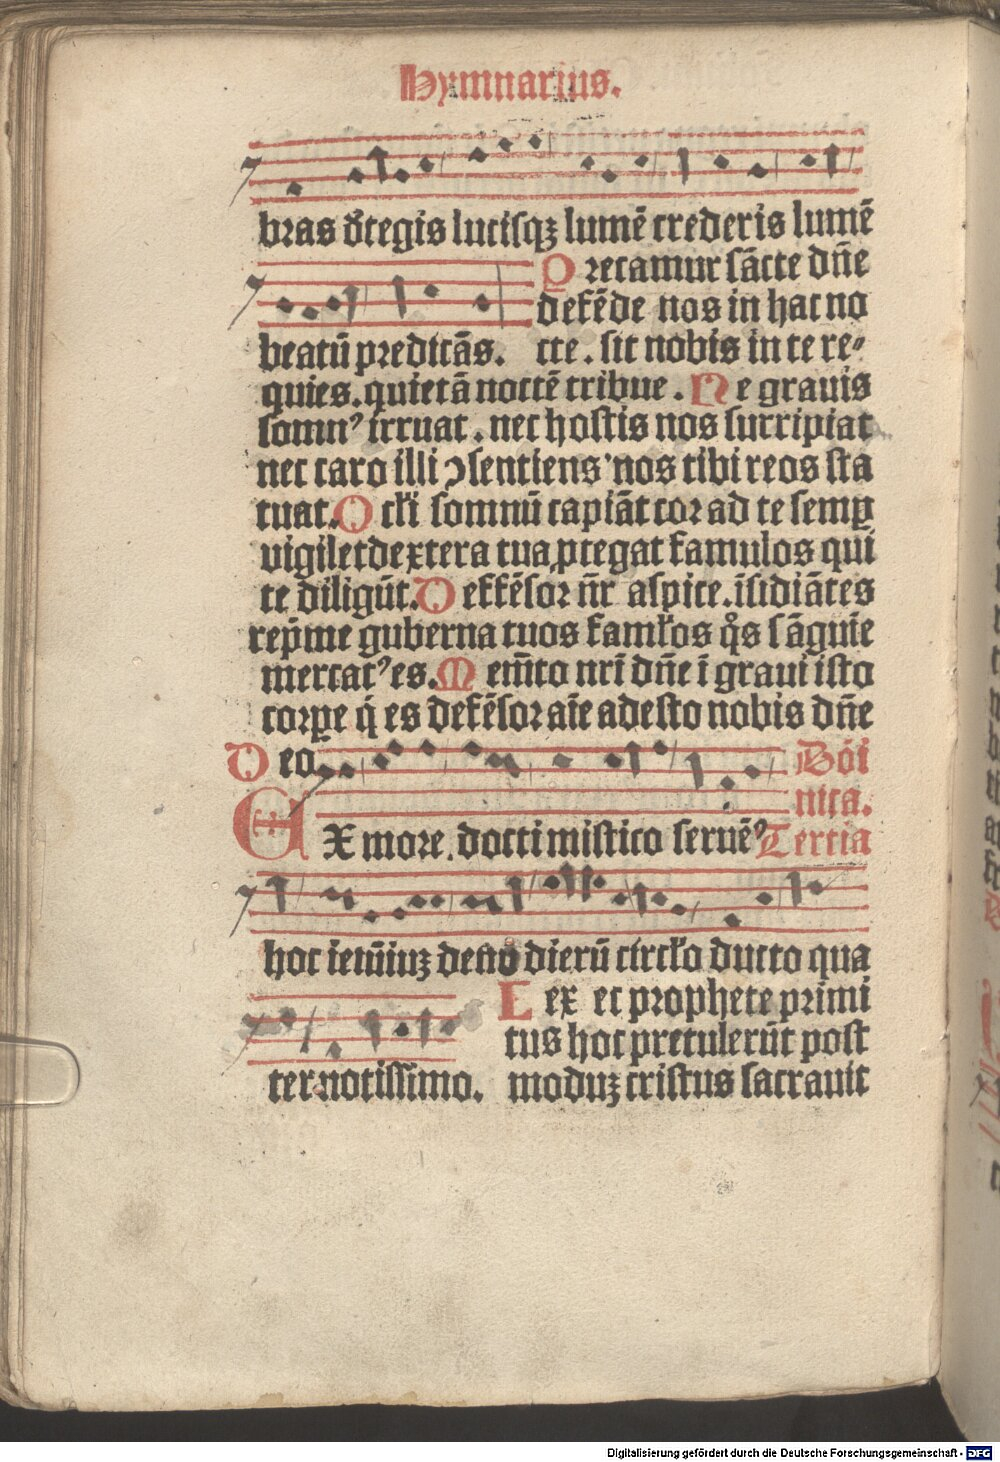 Hymnarius.
bras ďtegis lucisqꝫ lumē crederis lumē
Precamur sācte dn̄e
defēde nos in hac no
beatū predicās. cte. sit nobis in te re⸗
quies. quietā noctē tribue. Ne grauis
somnꝰ irruat. nec hostis nos surripiat
nec caro illi ↄsentiens nos tibi reos sta
tuat. Ocl̄i somnū capiāt cor ad te semꝑ
vigilet dextera tua ꝓtegat famulos qui
te diligūt. Deffēsor nr̄ aspice. īsidiātes
rep̄me guberna tuos faml̄os q̊s sāguīe
mercatꝰ es. Mem̄to nrī dn̄e ī graui isto
corꝑe q̇ es defēsor aīe adesto nobis dn̄e
Deo Dōi
nica.
EX more docti mistico seruēꝰ Tercia
hoc ieiūiuꝫ deno dierū circl̄o ducto qua
Lex et prophete primi
tus hoc pretulerūt post
ter notissimo. moduꝫ cristus sacrauit
Digitalisierung gefördert durch die Deutsche Forschungsgemeinschaft - DFG